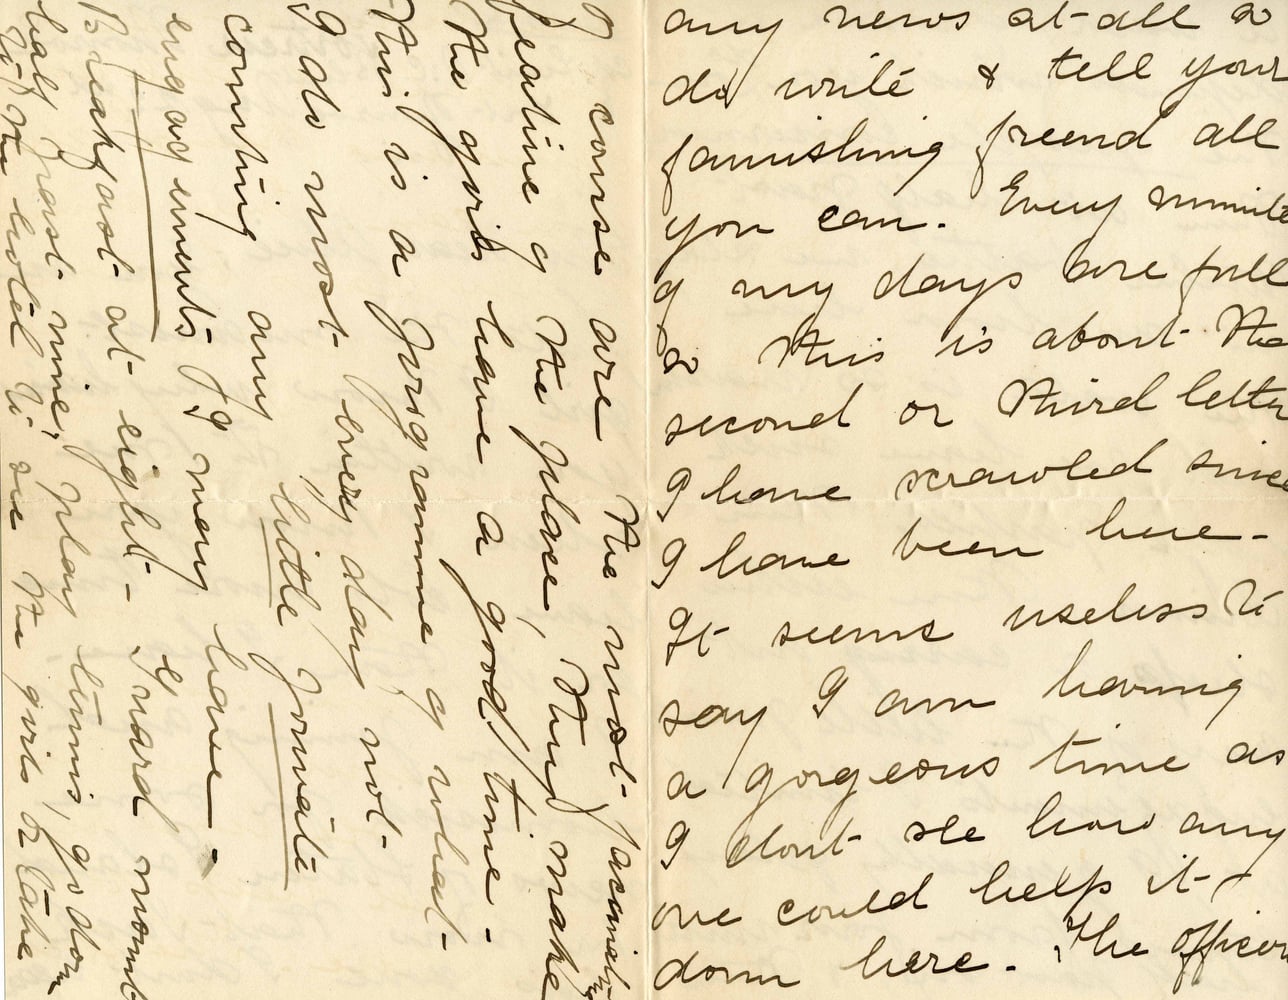 any news at all &
do write & tell your
famishing freend all
you can. Every minute
of my days are full
& this is about the
second or third letter
I have scrawled since
I have been here -
It seems useless to
say I am having
a gorgeous time as
I dont see how any
one could help it
down here. The officers
of course are the most fascinating
feature of the place, they make
the girls have a good time -
This is a programme of what
I do most every day not
counting any little private
engagements I may have.
Breakfast at eight - Guard mount
half past nine, play tennis, go down
to the hotel to see the girls or take